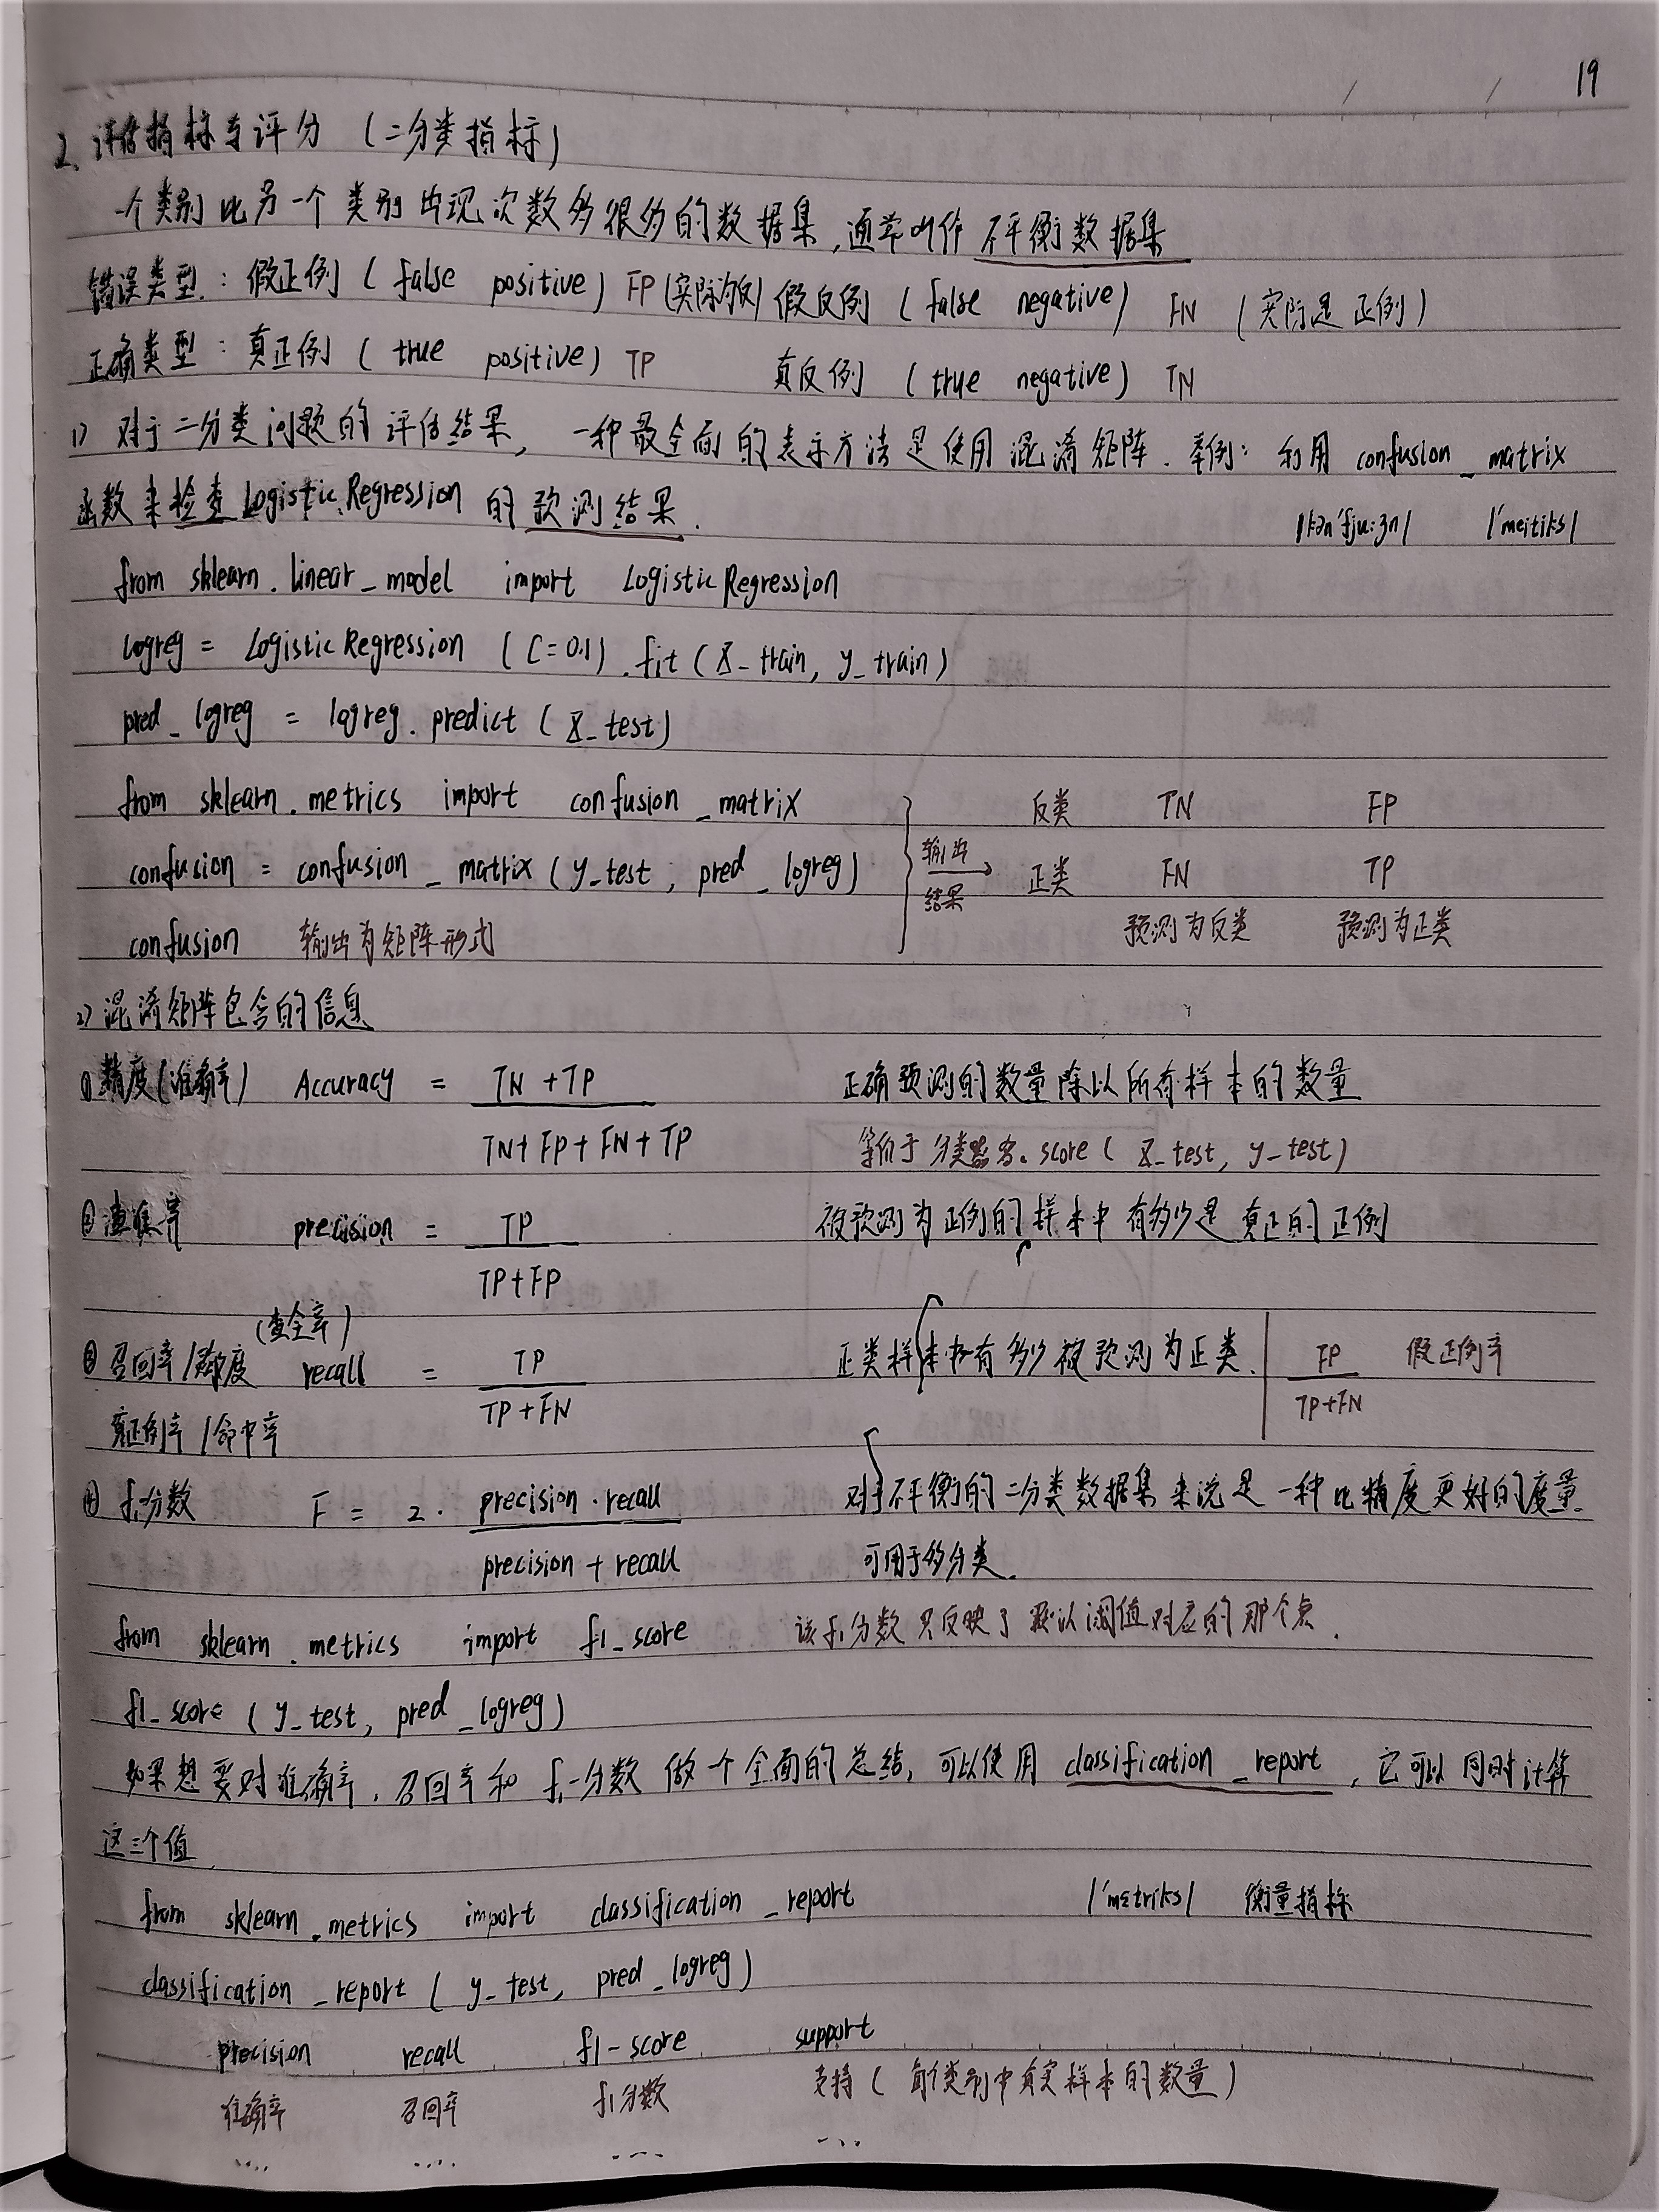 19
2. 评估指标与评分 (二分类指标)
一个类别比另一个类别出现次数多很多的数据集,通常叫作 不平衡数据集
错误类型: 假正例 ( false positive) FP (实际为反) 假反例 ( false negative) FN (实际是正例)
正确类型: 真正例 ( true positive) TP 真反例 (true negative) TN
1) 对于二分类问题的评估结果, 一种最全面的表示方法是使用混淆矩阵. 举例: 利用 confusion_matrix
函数来检查 LogisticRegression 的预测结果. |kən'fju:ʒn| |'meitiks|
from sklearn.linear_model import LogisticRegression
logreg = LogisticRegression (C=0.1).fit (X_train, y_train)
pred_logreg = logreg.predict (X_test)
from sklearn.metrics import confusion_matrix 反类 TN FP
confusion = confusion_matrix (y_test, pred_logreg) 输出结果 → 正类 FN TP
confusion 输出为矩阵形式 预测为反类 预测为正类
2) 混淆矩阵包含的信息
① 精度(准确率) Accuracy = TN+TP 正确预测的数量除以所有样本的数量
TN+FP+FN+TP 等价于 分类器名.score ( X_test, y_test)
② 查准率 precision = TP 被预测为正例的样本中有多少是真正的正例
TP+FP
(查全率)
③ 召回率/灵敏度 recall = TP 正类样本中有多少被预测为正类. FP 假正例率
TP+FN TP+FN
真正例率/命中率
④ f₁分数 F = 2· precision·recall 对于不平衡的二分类数据集来说是一种比精度更好的度量.
precision + recall 可用于多分类.
from sklearn.metrics import f1_score 该f₁分数只反映了默认阈值对应的那个点.
f1_score (y_test, pred_logreg)
如果想要对准确率、召回率和 f₁-分数 做一个全面的总结, 可以使用 classification_report , 它可以同时计算
这三个值
from sklearn.metrics import classification_report |'metriks| 衡量指标
classification_report ( y_test, pred_logreg)
precision recall f1-score support
准确率 召回率 f₁分数 支持 ( 每个类别中真实样本的数量)
.... .... .... ....